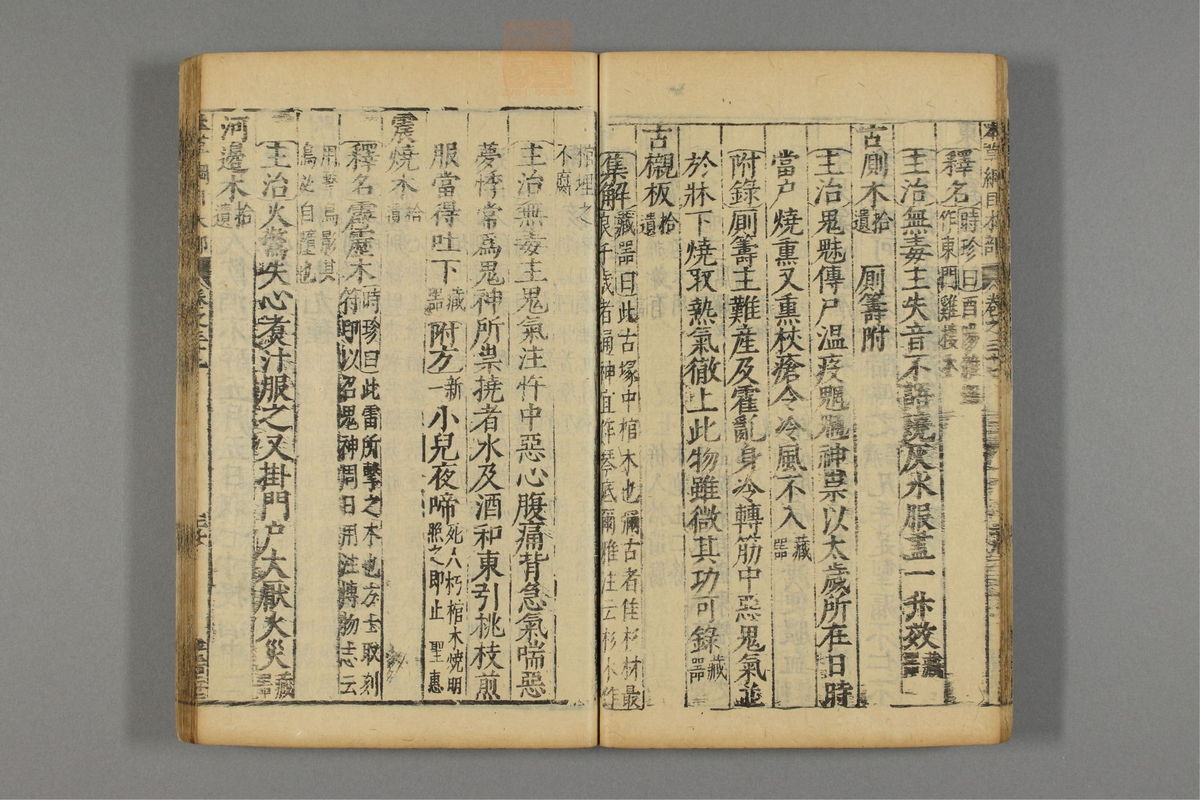 本草綱目木部 卷之三十七
釋名時珍曰酉陽雜俎作東門雞棲木
主治無毒主失音不語燒灰水服盡一升效藏器
古厠木拾遺 厠籌附
主治鬼魅傳尸溫疫魍魎神祟以太歲所在日時
當戶燒熏又熏杖瘡令冷風不入藏器
附錄厠籌主難産及霍亂身冷轉筋中惡鬼氣並
於牀下燒取熱氣徹上此物雖微其功可錄藏器
古櫬板拾遺
集解藏器曰此古塚中棺木也彌古者佳杉材最良千歲者通神宜作琴底爾雅注云杉木作
棺埋之不腐
主治無毒主鬼氣注忤中惡心腹痛背急氣喘惡
夢悸常爲鬼神所祟撓者水及酒和東引桃枝煎
服當得吐下藏器附方新一小兒夜啼死人朽棺木燒明照之即止 聖惠
震燒木拾遺
釋名霹靂木時珍曰此雷所擊之木也方士取刻符印以召鬼神周日用注博物志云
用擊鳥影其鳥必自墮也
主治火驚失心煑汁服之又掛門戶大厭火災藏器
河邊木拾遺
本草綱目木部 卷之三十七